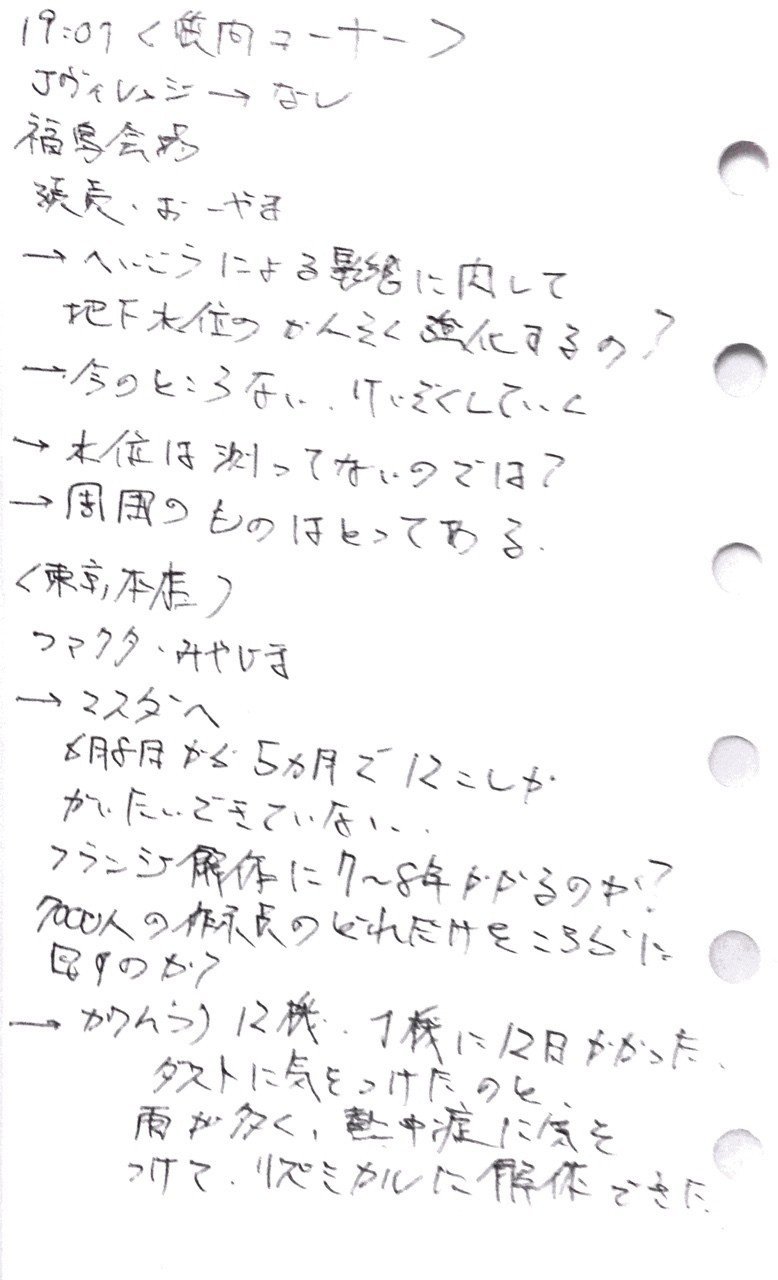 19:07<質問コーナー>
Jヴィレッジ→なし
福島会場
読売・おーやま
→へいこうによる影響に関して
地下水位のかんそく強化するの?
→今のところない.けいぞくしていく
→水位は測ってないのでは?
→周囲のものはとってある.
<東京本店>
ファクタ・みやじま
→マスダへ
6月8日から5カ月で12こしか
かいたいできていない..
フランジ解体に7~8年かかるのか?
7000人の作業員のどれだけをこちらに
回すのか?
→ 12機.1機に12日かかった.
ダストに気をつけたのと、
雨が多く,熱中症に気を
つけて.リズミカルに解体できた